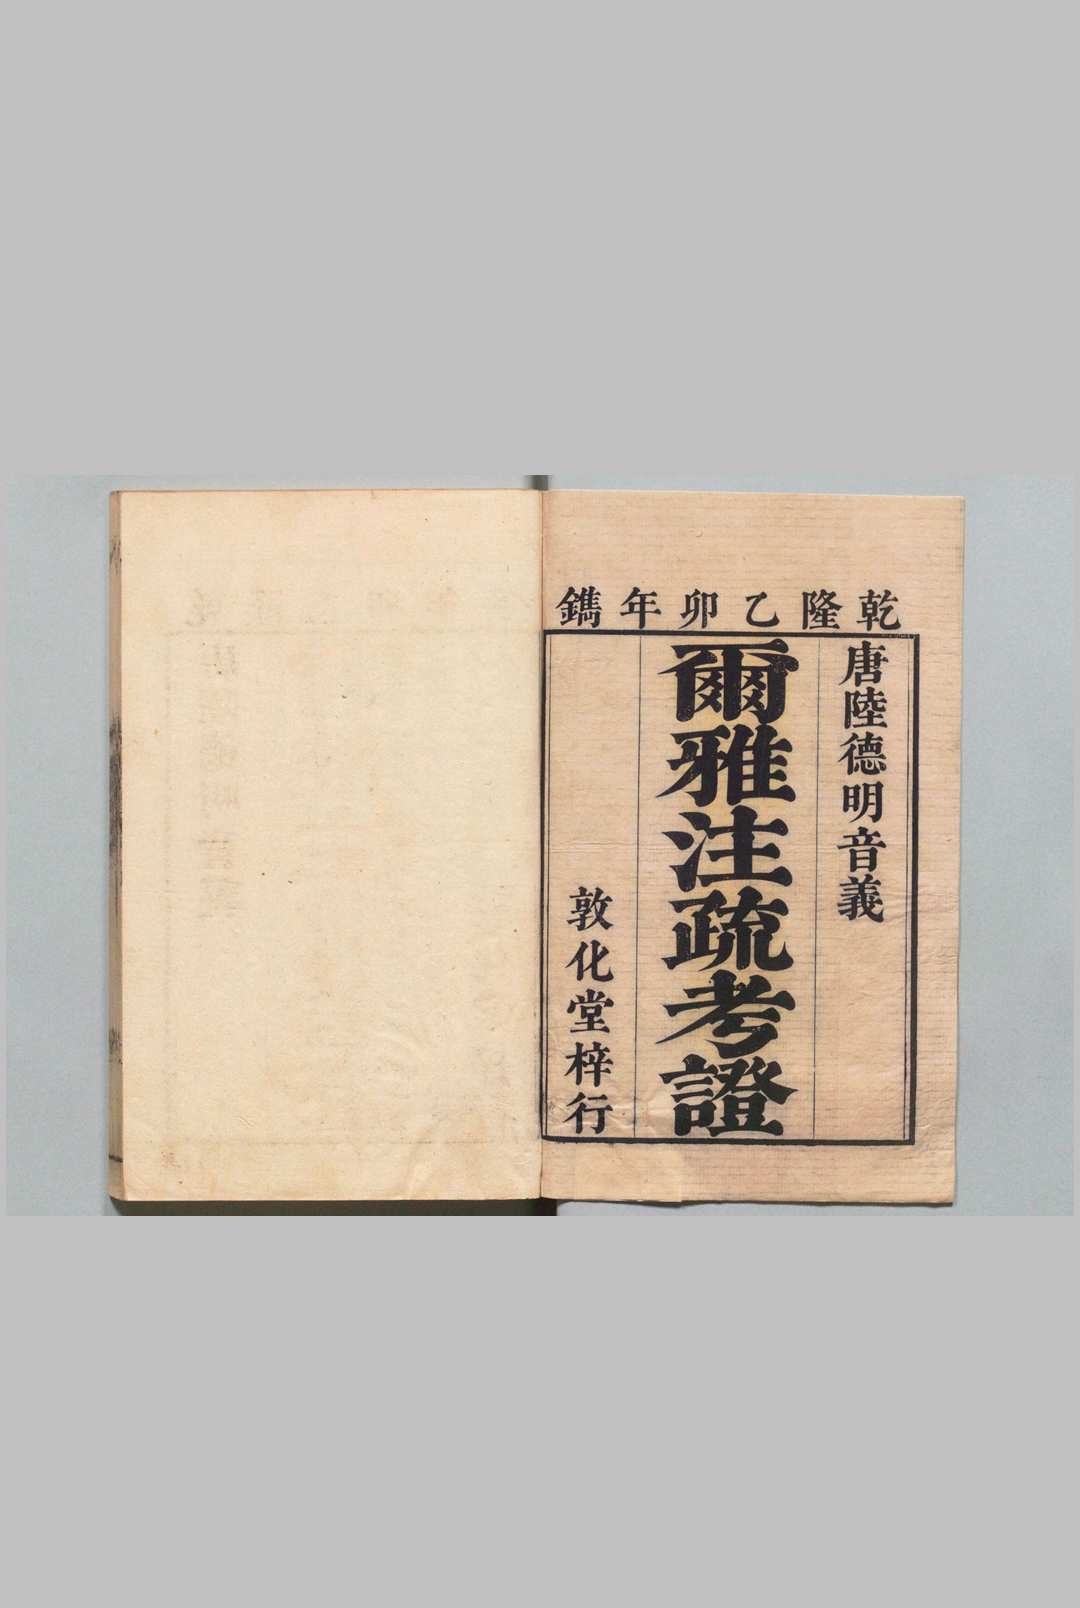 乾隆乙卯年鐫
唐陸德明音義
爾雅注疏考證
敦化堂梓行